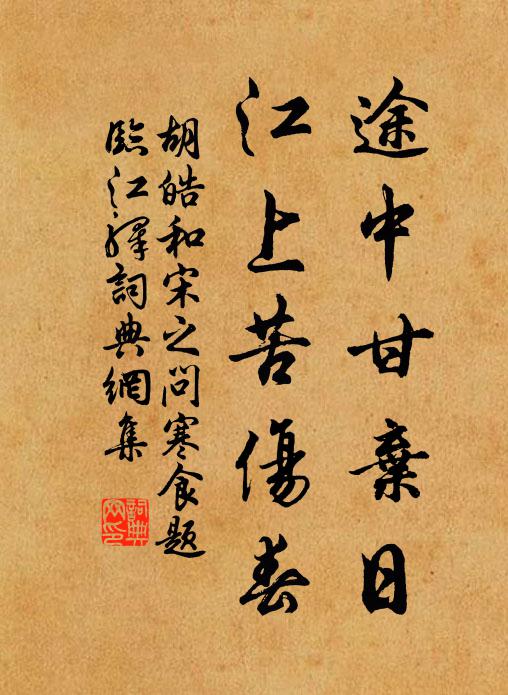 途中甘棄日
江上苦傷春
胡皓和宋之問寒食題
臨江驛詞典網集
詞典
网印